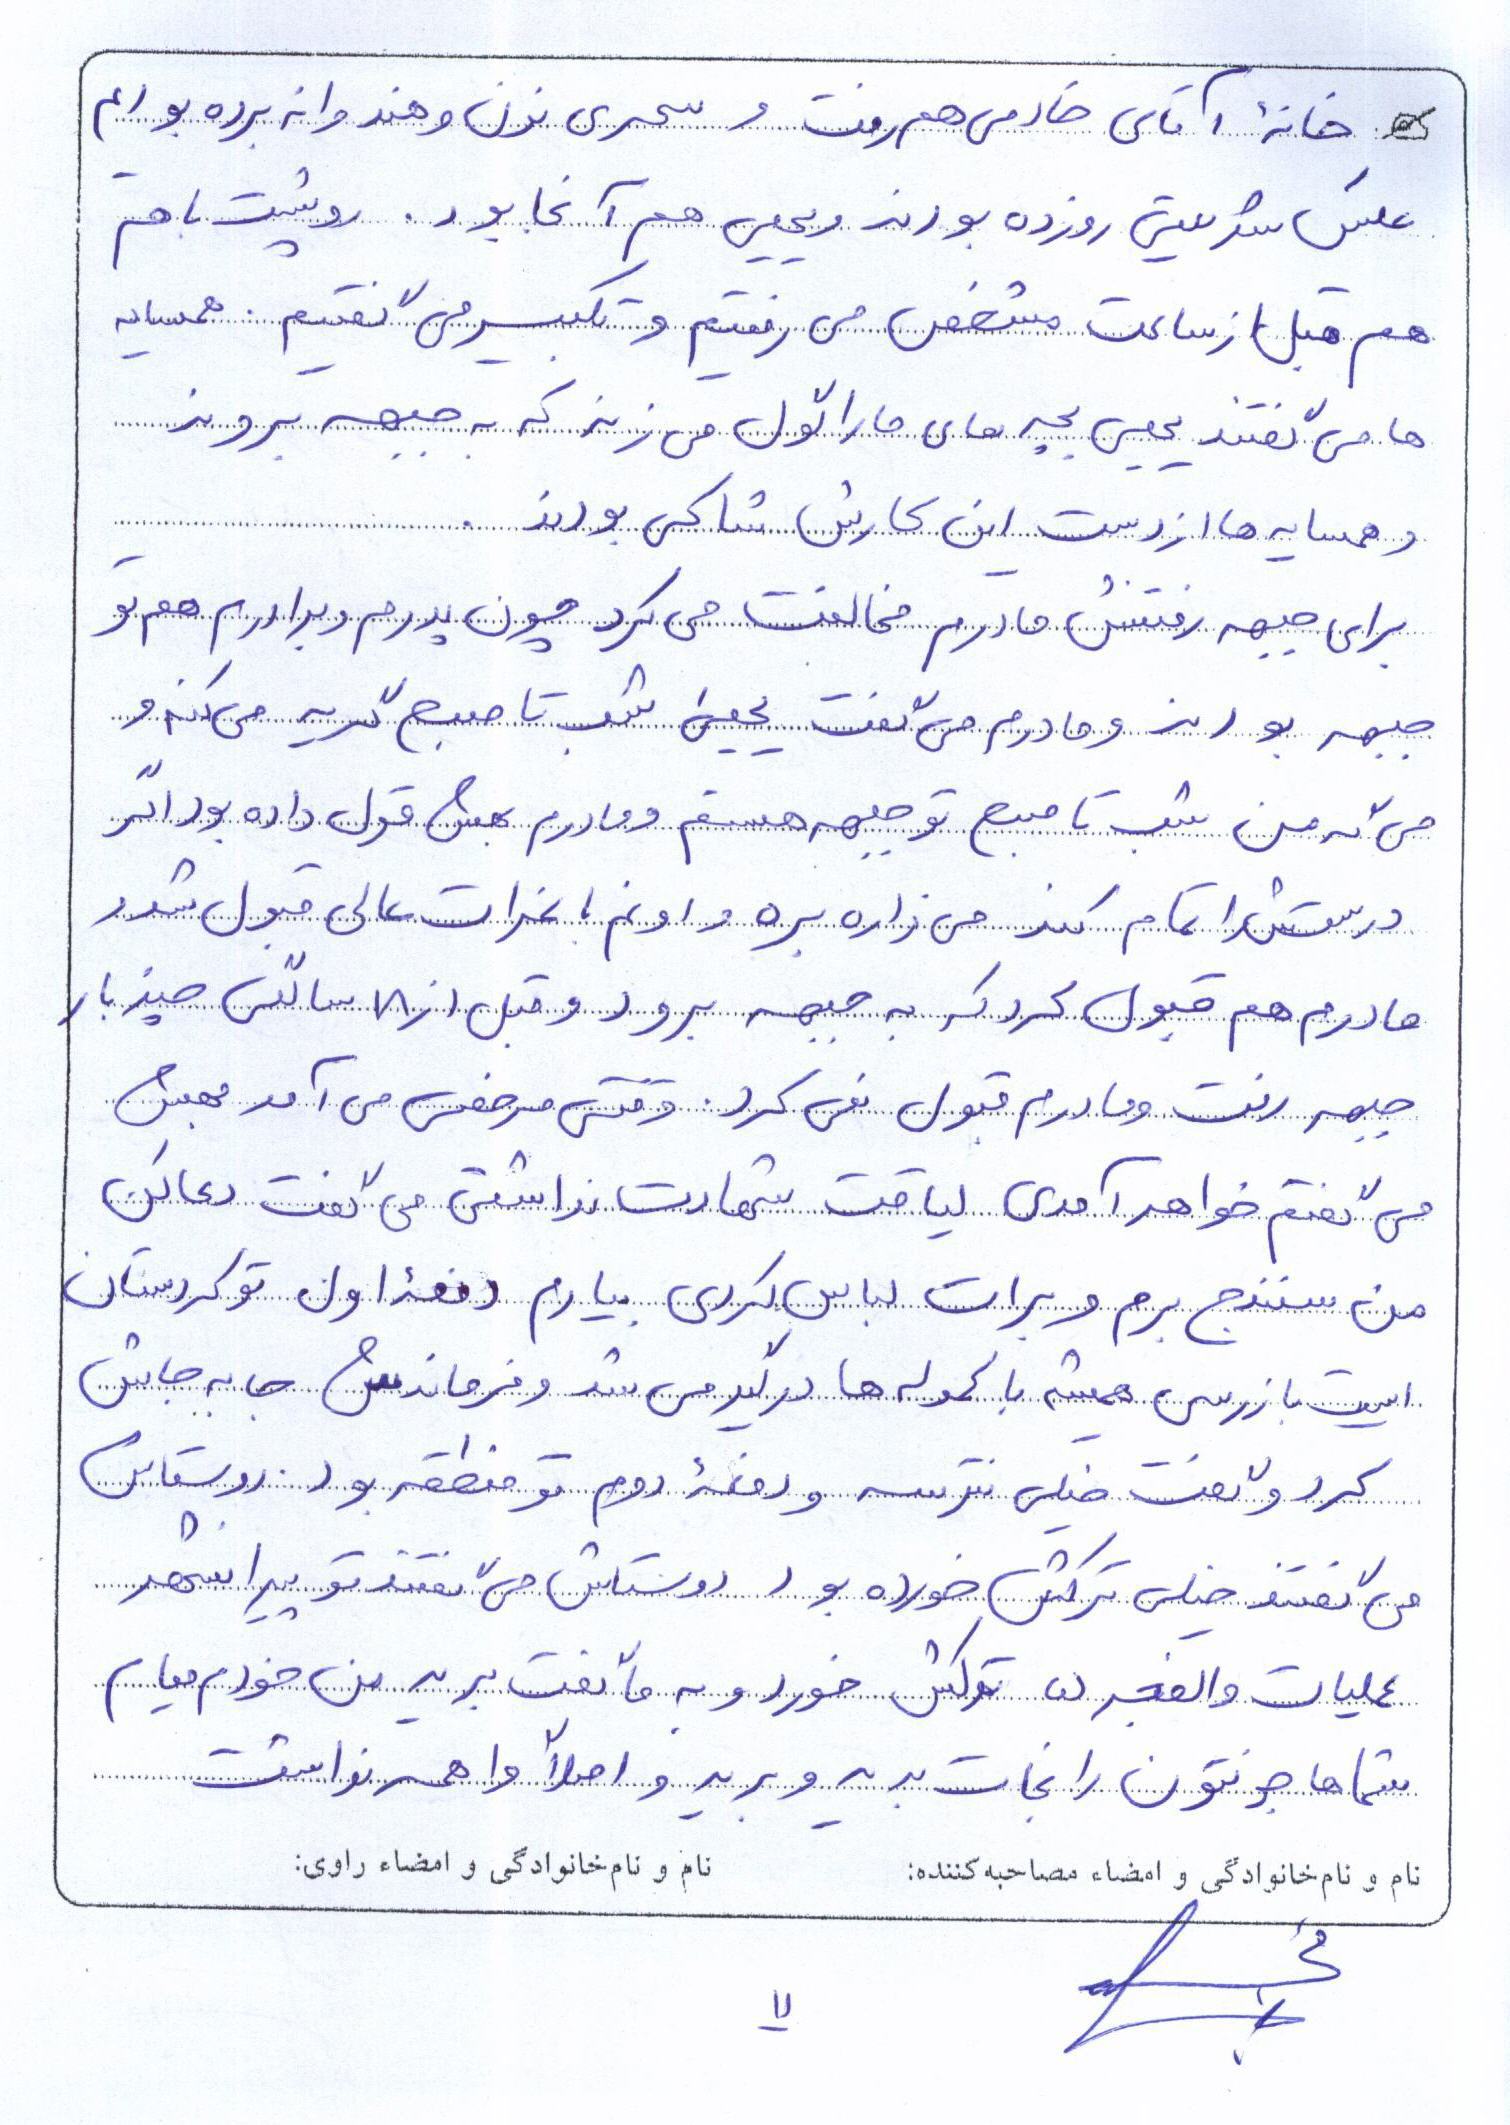 خانهٔ آقای خادمی هم رفت و سحری نون و هندوانه برده بودم
عکس شریعتی رو زده بودند و یحیی هم آنجا بود. رو پشت بام
هم قبل از ساعت مشخص می رفتیم و تکبیر می گفتیم. همسایه
ها می گفتند یحیی بچه های ما را گول می زند که به جبهه بروند
و همسایه ها از دست این کارش شاکی بودند.
برای جبهه رفتنش مادرم مخالفت می کرد چون پدرم و برادرم هم تو
جبهه بودند و مادرم می گفت یحیی شب تا صبح گریه می کنه و
می گه من شب تا صبح تو جبهه هستم و مادرم بهش قول داده بود اگر
درستش را تمام کند می زاره بره و اونم با نمرات عالی قبول شد و
مادرم هم قبول کرد که به جبهه برود و قبل از ۱۸ سالگی چند بار
جبهه رفت و مادرم قبول نمی کرد. وقتی مرخصی می آمد بهش
می گفتم خواهر آمدی لیاقت شهادت نداشتی می گفت دعا کن
من سنندج برم و برات لباس کردی بیارم دفعهٔ اول تو کردستان
ایست بازرسی همیشه با کموله ها درگیر می شد و فرماندش جا به جاش
کرد و گفت خیلی نترسه و دفعهٔ دوم تو منطقه بود. دوستاش
می گفتند خیلی ترکش خورده بود دوستاش می گفتند تو پیرانشهر
عملیات والفجر ترکش خورد و به ما گفت برید من خودم میام
شماها جونتون را نجات بدید و برید و اصلاً واهمه نداشت
نام و نام‌خانوادگی و امضاء مصاحبه‌کننده: نام و نام‌خانوادگی و امضاء راوی: